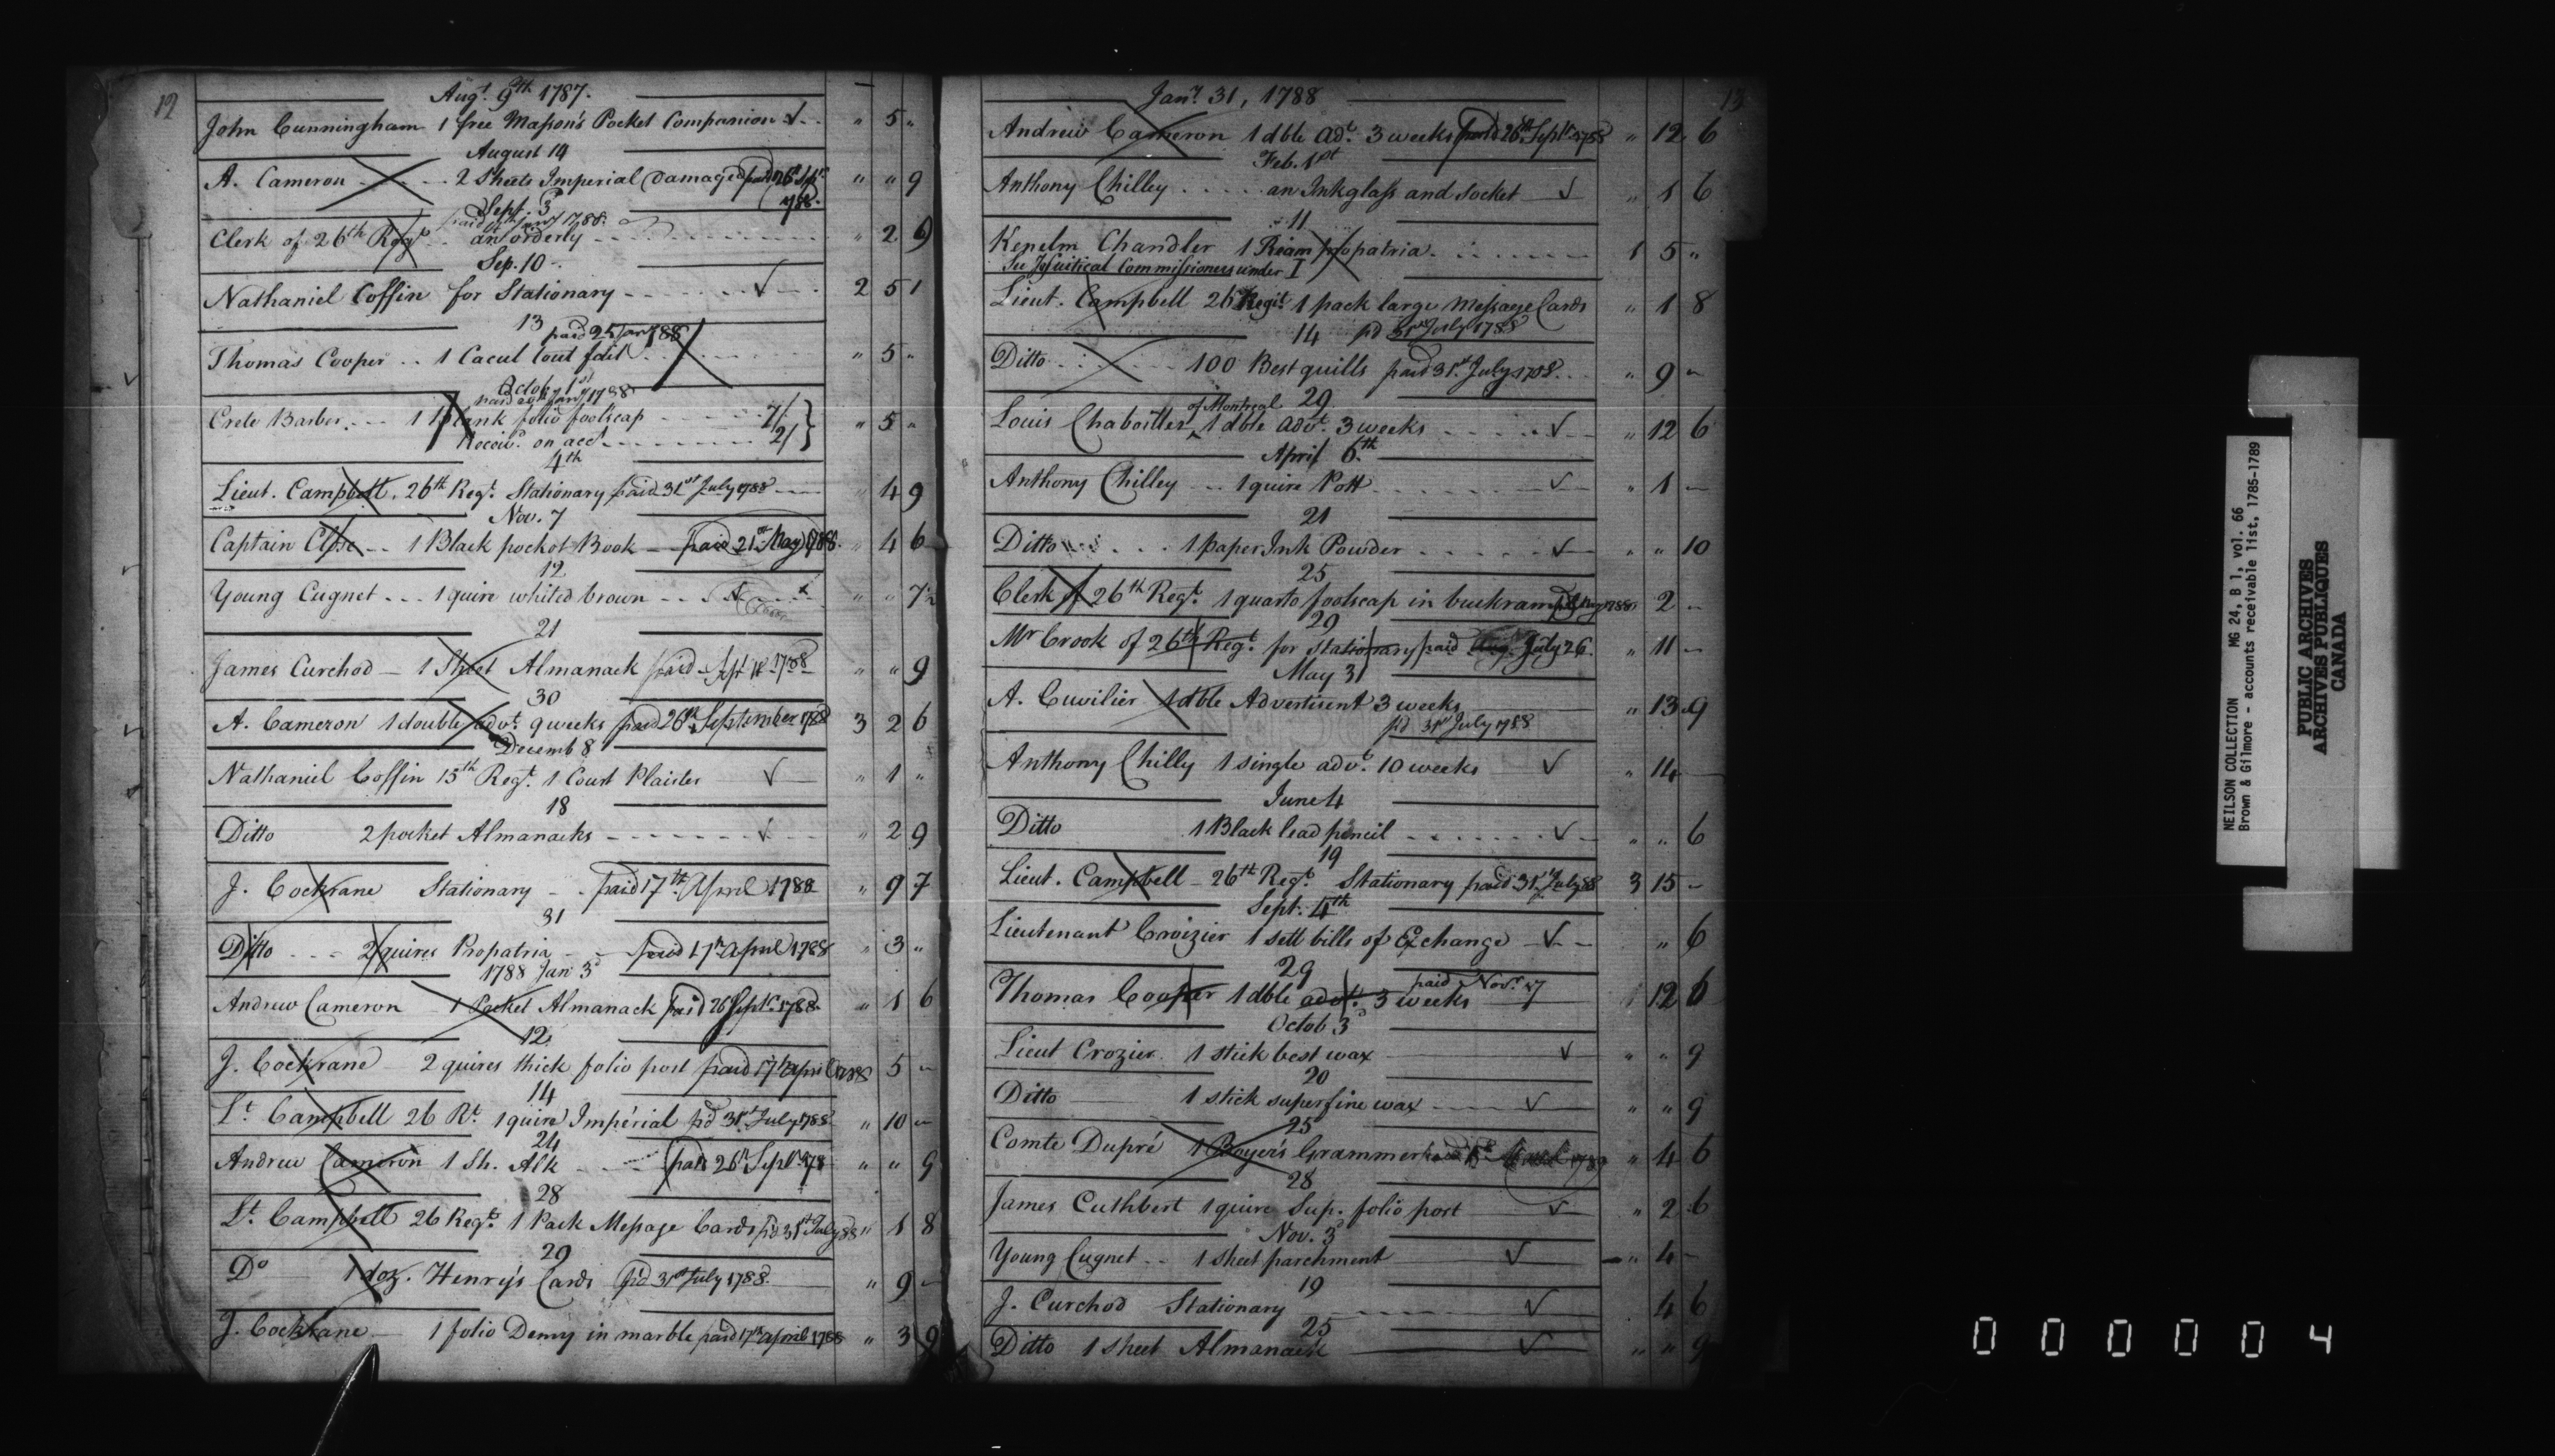 12
Augt. 9th 1787.
John Cunningham 1 free Mason's Pocket Companion √ " 5 "
August 14
A. Cameron 2 Sheets Imperial (damaged) paid 26 Sept. 1788. " " 9
Sept. 3
paid Jany 1788.
Clerk of 26th Regt. an orderly " 2 9
Sep. 10
Nathaniel Coffin for Stationary √ 2 5 1
13 paid 25 Jany 88
Thomas Cooper 1 Cacul tout fait " 5 "
Octob. 1st
paid Jany 1788
Crete Barber 1 Blank folio foolscap 7/ " 5 "
Receivd. on acct. 2/
4th
Lieut. Campbell. 26th Regt. Stationary paid 31st July 1788 " 4 9
Nov. 7
Captain Close 1 Black pocket Book paid 21st May 1788. " 4 6
12
Young Cugnet 1 quire whited brown " " 7½
21
James Curchod 1 Sheet Almanack paid Sept 11 1788 " " 9
30
A. Cameron 1 double advt. 9 weeks paid 26th September 1788 3 2 6
Decemb 8
Nathaniel Coffin 15th Regt. 1 Court Plaister √ " 1 "
18
Ditto 2 pocket Almanacks √ " 2 9
J. Cockrane Stationary paid 17th April 1788 " 9 7
31
Ditto 2 quires Propatria paid 17th April 1788 " 3 "
1788 Jan 3d
Andrew Cameron 1 Pocket Almanack paid 26 Septr. 1788 " 1 6
12
J. Cockrane 2 quires thick folio post paid 17th April 1788 5 "
14
Lt. Campbell 26 Rt. 1 quire Impérial pd 31st July 1788 " 10 "
24
Andrew Cameron 1 Sh. Alk paid 26th Septr. 178 " " 9
28
Lt. Campbell 26 Regt. 1 Pack Message Cards pd 31st July 88 " 1 8
29
Do 1 doz. Henry's Cards pd 31st July 1788. " 9 "
J. Cockrane 1 folio Demy in marble paid 17th April 1788 " 3 9
13
Jany. 31, 1788
Andrew Cameron 1 dble Adt. 3 weeks paid 26th Septr. 1788 " 12 6
Feb. 1st
Anthony Chilley an Inkglass and socket √ " 1 6
11
Kenelm Chandler 1 Ream propatria. 1 5 "
See Jesuitical Commissioners under I
Lieut. Campbell 26 Regit. 1 pack large Message Cards " 1 8
14 pd 31st July 1788
Ditto 100 Best quills paid 31st July 1788. " 9 "
29
Louis Chaboiller of Montreal 1 dble advt. 3 weeks √ " 12 6
April 6th
Anthony Chilley 1 quire Pott √ " 1 "
21
Ditto 1 paper Ink Powder √ " " 10
25
Clerk of 26th Regt. 1 quarto foolscap in buckram 1788 2 "
29
Mr Crook of 26th Regt. for Stationary paid July 26. " 11 "
May 31
A. Cuvilier 1 dble Advertisent 3 weeks " 13 9
pd 31st July 1788
Anthony Chilly 1 single advt. 10 weeks √ " 14
June 4
Ditto 1 Black lead pencil √ " " 6
19
Lieut. Campbell 26th Regt. Stationary paid 31st July 88 3 15 "
Sept. 4th
Lieutenant Croizier 1 sett bills of Exchange √ " 6
29
Thomas Cooper 1 dble advt. 3 weeks paid Novr. 27 12 6
Octob 3d
Lieut Crozier 1 stick best wax √ " " 9
20
Ditto 1 stick superfine wax √ " " 9
25
Comte Dupré 1 Boyer's Grammer 1789 " 4 6
28
James Cuthbert 1 quire Sup. folio post √ " 2 6
Nov. 3d
Young Cugnet 1 sheet parchment √ " 4 "
19
J. Curchod Stationary √ 4 6
25
Ditto 1 sheet Almanack √ " " 9
NEILSON COLLECTION MG 24, B 1, vol. 66
Brown & Gilmore - accounts receivable list, 1785-1789
PUBLIC ARCHIVES
ARCHIVES PUBLIQUES
CANADA
000004